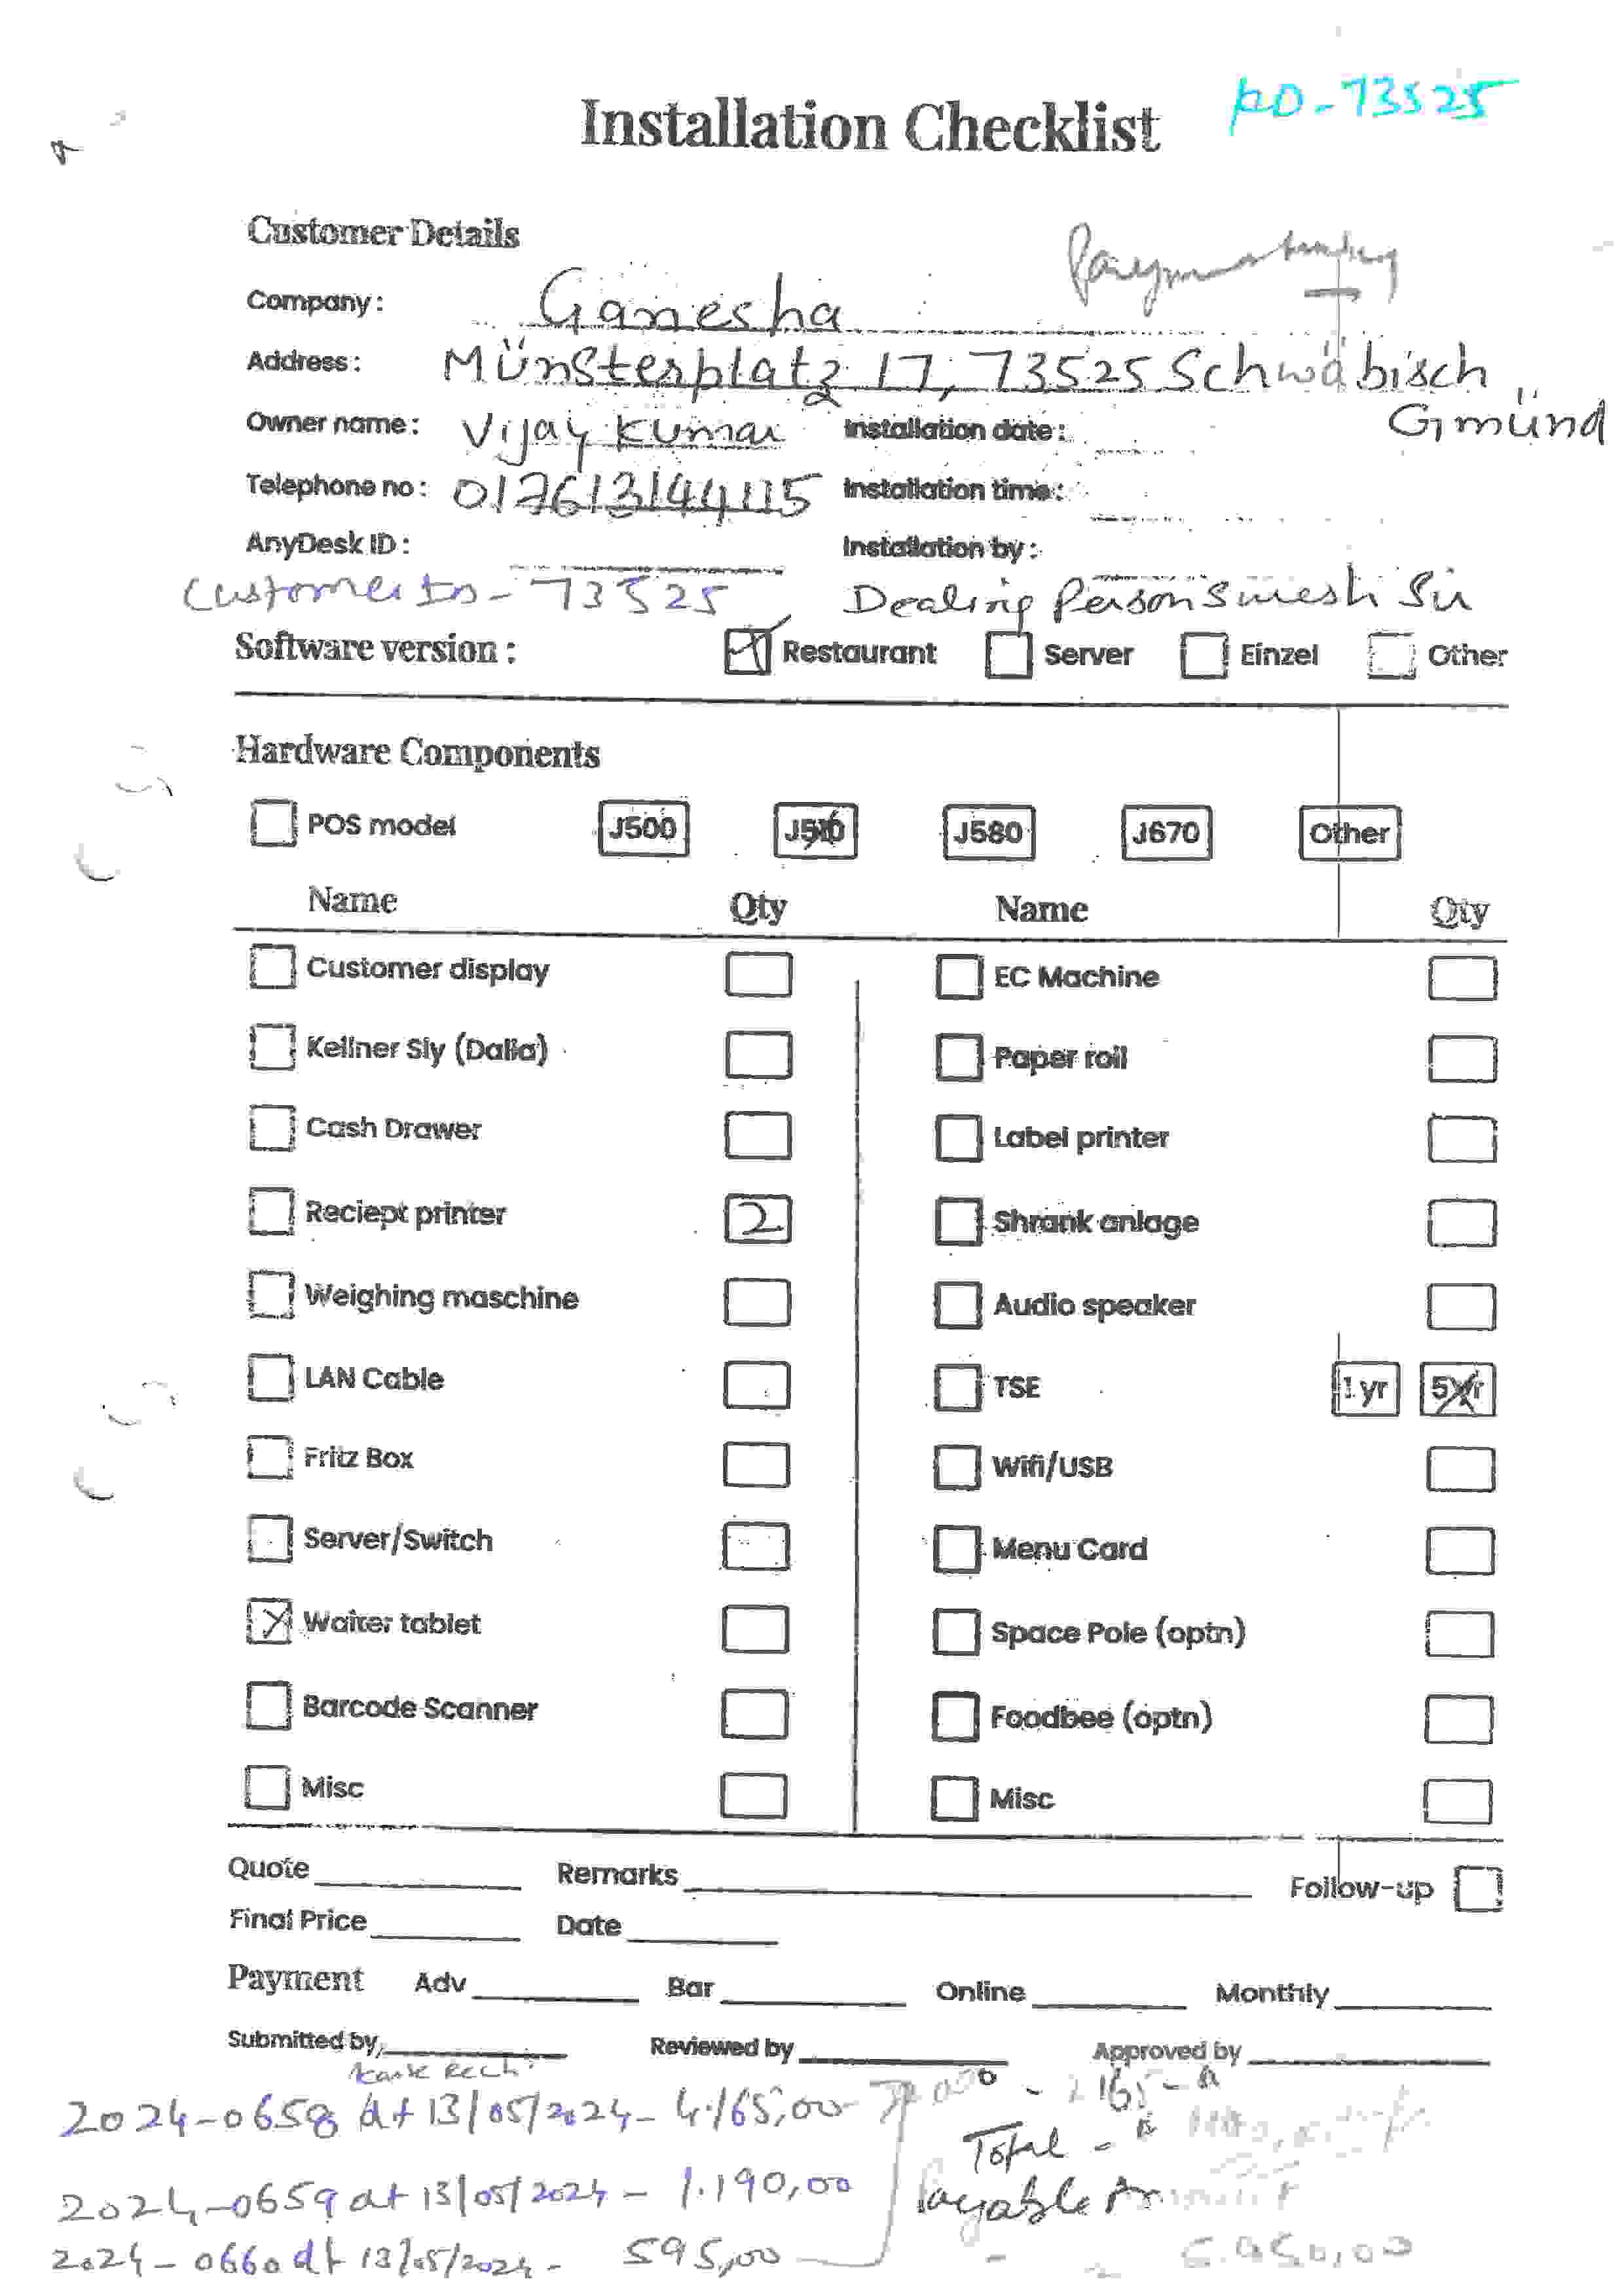 Installation Checklist
KD-73525
Customer Details
Company: Ganesha
Address: Münsterplatz 17, 73525 Schwäbisch
Gmünd
Owner name: Vijay Kumar Installation date:
Telephone no: 017613144115 Installation time:
AnyDesk ID: Installation by:
Customer ID- 73525 Dealing Person Suresh Sir
Software version: Restaurant Server Einzel Other
Hardware Components
POS model J500 J510 J580 J670 Other
Name Qty Name Qty
Customer display EC Machine
Kellner Sly (Dalla) Paper roll
Cash Drawer Label printer
Reciept printer 2 Shrank anlage
Weighing maschine Audio speaker
LAN Cable TSE 1 yr 5 yr
Fritz Box Wifi/USB
Server/Switch Menu Card
Waiter tablet Space Pole (optn)
Barcode Scanner Foodbee (optn)
Misc Misc
Quote Remarks Follow-up
Final Price Date
Payment Adv Bar Online Monthly
Submitted by Reviewed by Approved by
2024-0658 dt 13/05/2024- 4.165,00
Total -
2024-0659 dt 13/05/2024 - 1.190,00
Payable
2024-0660 dt 13/05/2024- 595,00